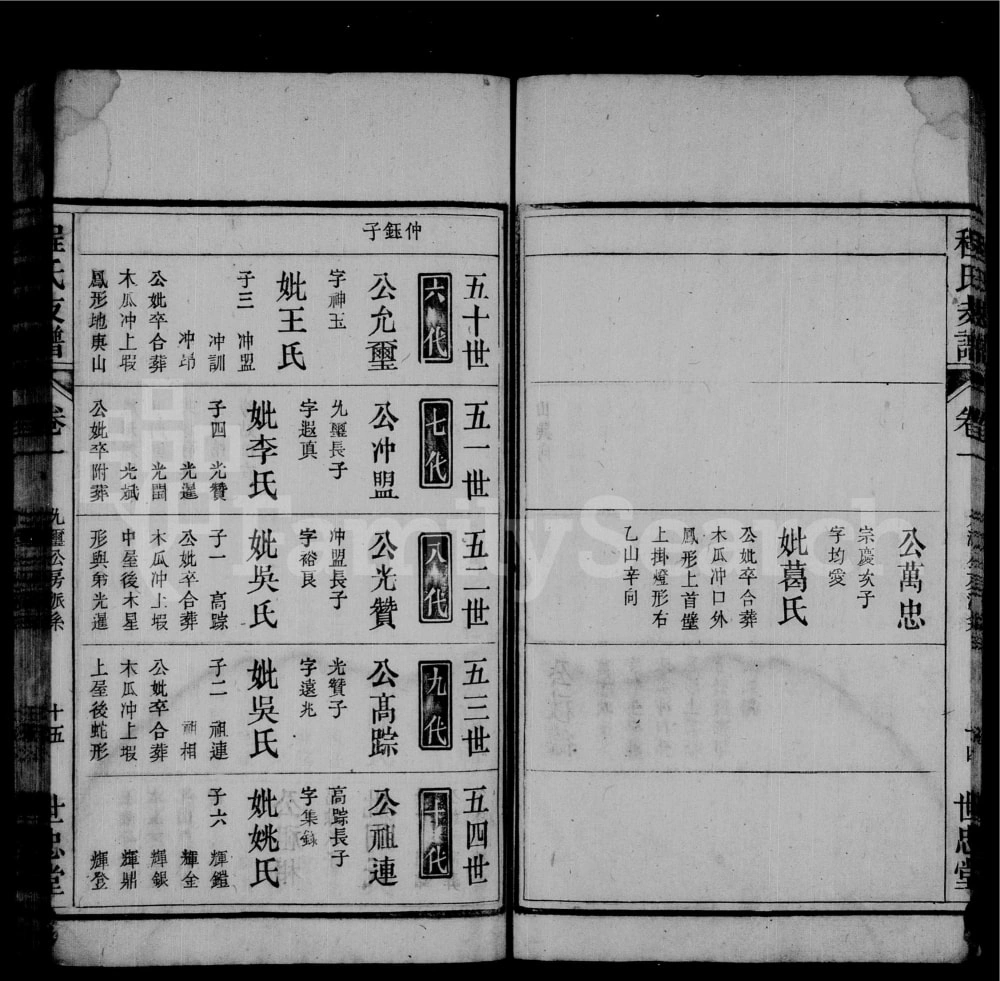 程氏支譜
卷一
世忠堂
公萬忠
宗慶次子
字均愛
妣葛氏
公妣卒合葬
木瓜冲口外
鳳形上首堂
上掛燈形右
乙山辛向
仲鈺子
五十世
六代
公允璽
字神玉
妣王氏
子三　冲盟
冲訓
冲昂
公妣卒合葬
木瓜冲上塅
鳳形地庚山
五一世
七代
公冲盟
允璽長子
字遐真
妣李氏
子四　光贊
光暹
光閏
光斌
公妣卒附葬
五二世
八代
公光贊
冲盟長子
字裕良
妣吳氏
子一　高踪
公妣卒合葬
木瓜冲上塅
中屋後木星
形與弟光暹
五三世
九代
公高踪
光贊子
字遠兆
妣吳氏
子二　祖連
祖相
公妣卒合葬
木瓜冲上塅
上屋後蛇形
五四世
十代
公祖連
高踪長子
字集錄
妣姚氏
子六　輝鎧
輝金
輝銀
輝鼎
輝釡
程氏支譜
卷一
允璽公房派系
十五
世忠堂
FamilySearch